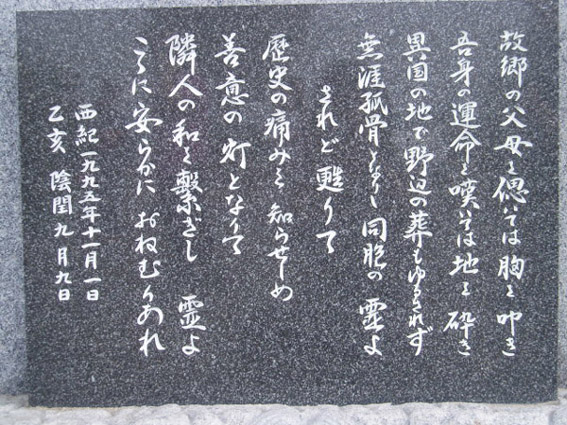 故郷の父母を偲いては胸を叩き
吾身の運命を嘆いては地を砕き
異国の地で野辺の葬もゆるされず
無涯孤骨となりし同胞の霊よ
されど甦りて
歴史の痛みを知らせしめ
善意の灯となりて
隣人の和を繋ぎし霊よ
ここに安らかにおねむりあれ
西紀一九九五年十一月一日
乙亥陰閏九月九日